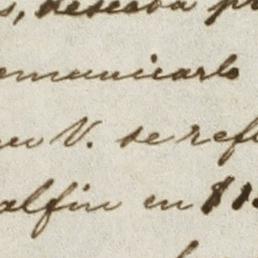 s, deseaba pr
omunicarlo
en V. se refi
alfin en $1